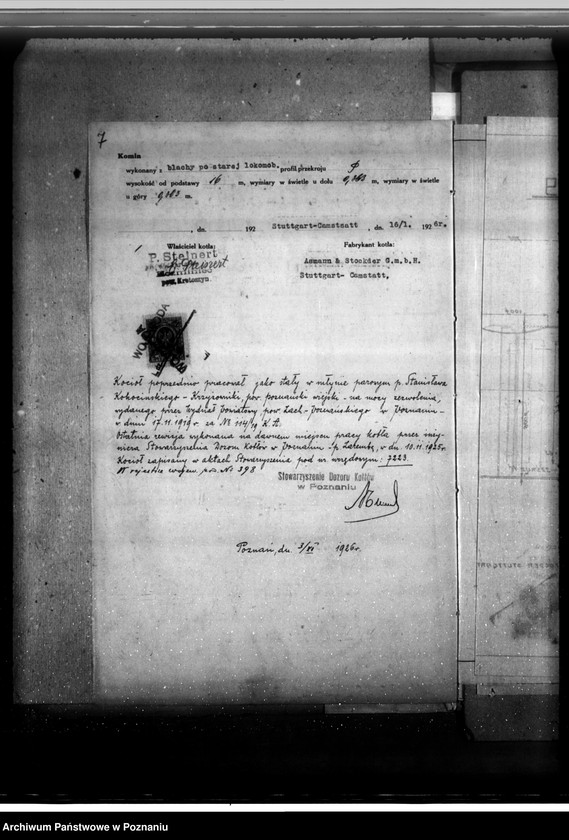 7
Komin
wykonany z blachy po starej lokomob. profil przekroju
wysokość od podstawy 16 m, wymiary w świetle u dołu 0,383 m, wymiary w świetle
u góry 0,383 m.
, dn. 192 Stuttgart-Canstatt , dn. 16/1. 1926r.
Właściciel kotła: Fabrykant kotła:
P. Steinert
Assmann & Stockder G.m.b.H.
Stuttgart- Canstatt,
pow. Krotoszyn.
Kocioł poprzednio pracował jako stały w młynie parowym p. Stanisława
Kokocińskiego - Krzyżowniki pow. poznański wiejsk. - na mocy zezwolenia,
wydanego przez Wydział Powiatowy pow. Zach.-Poznańskiego w Poznaniu -
w dniu 17.11.1919 r. za № 114/19 K.A.
Ostatnia rewizja wykonana na dawnem miejscu pracy kotła przez inży-
niera Stowarzyszenia Dozoru Kotłów w Poznaniu, Zarembę, w dn. 10.11.1925r.
Kocioł zapisany w aktach Stowarzyszenia pod nr. urzędowym: 7223.
W rejestrze poz. № 398
Stowarzyszenie Dozoru Kotłów
w Poznaniu
Poznań, dn. 3/VI 1926r.
Archiwum Państwowe w Poznaniu